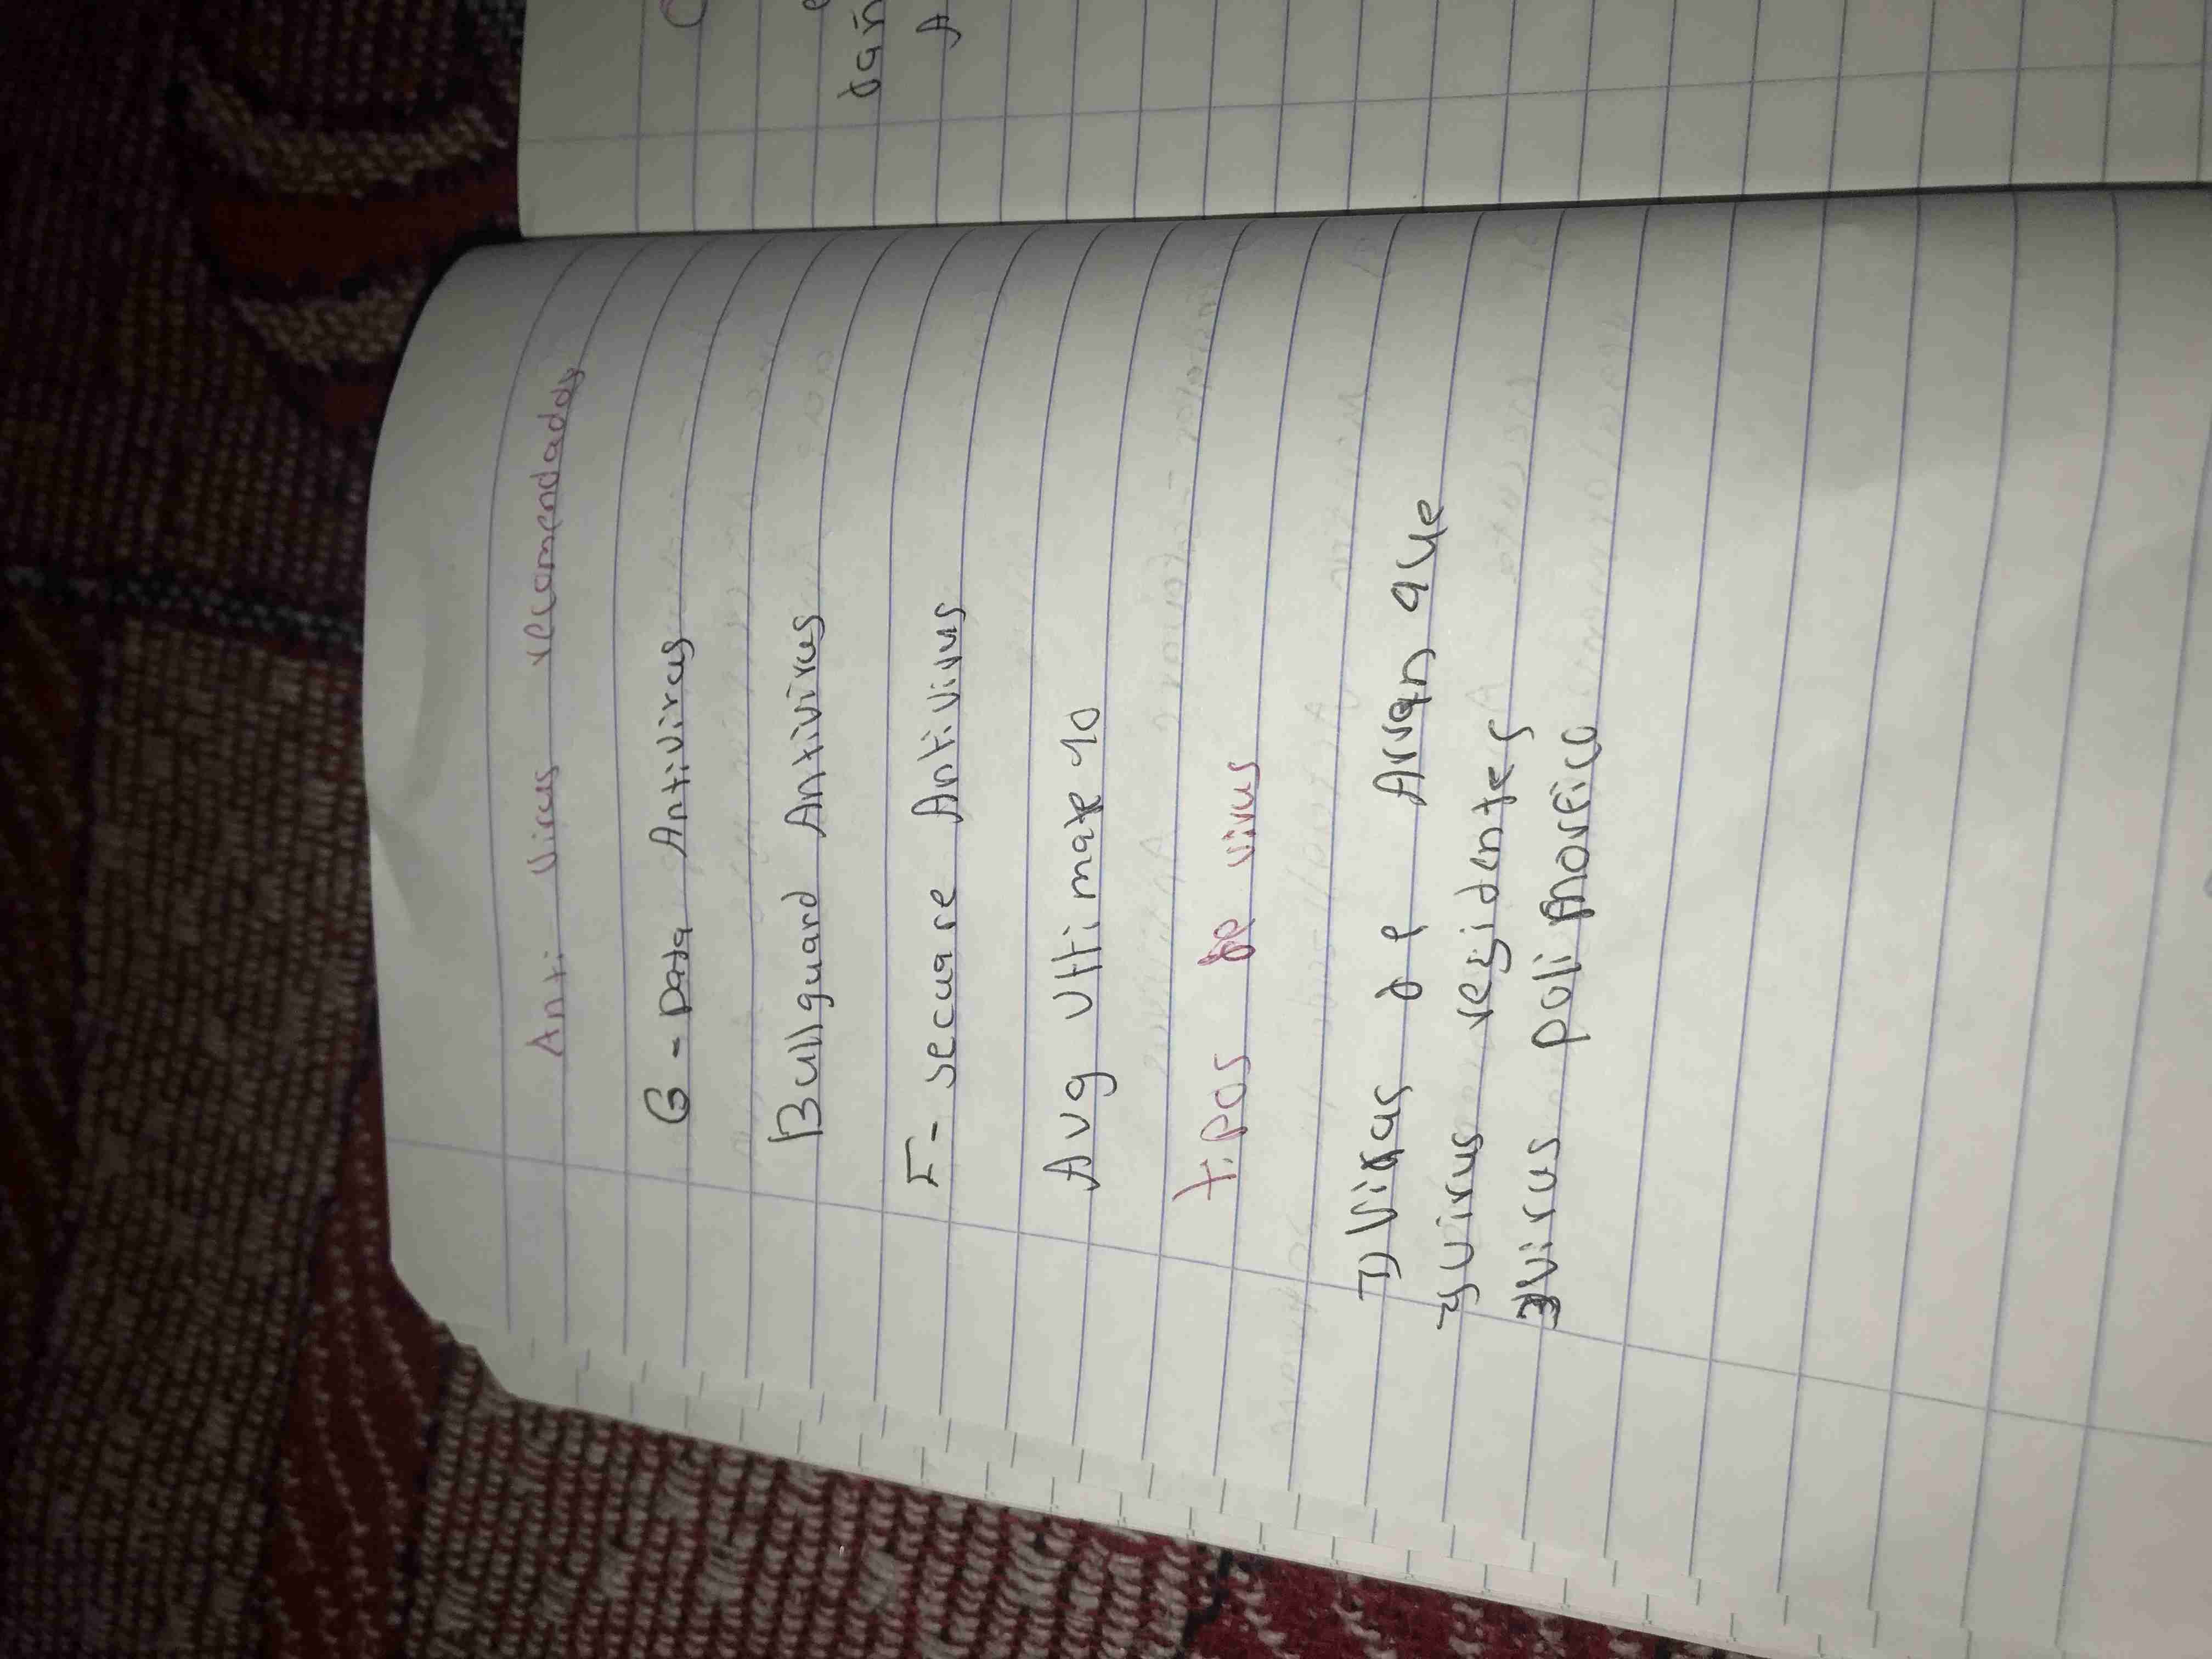 Anti virus recomendados
G-Data Antivirus
Bullguard Antivirus
F-secuare Antivirus
Avg Ultimate 10
tipos de virus
1) Virus de Arranque
2) virus residentes
3) virus poli Morfico
dañ
A